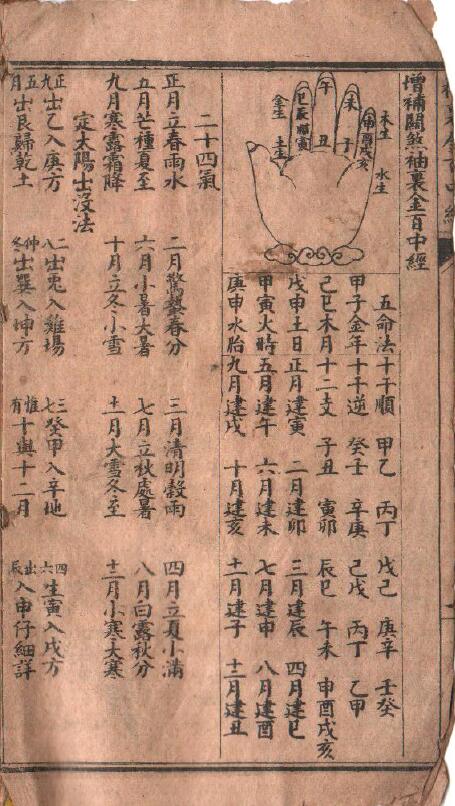 增補關煞袖裏金百中經
午
未
申酉戌亥
巳辰卯寅
丑
子
木生
水生
金生
土生
五命法 十干順 甲乙 丙丁 戊己 庚辛 壬癸
甲子金年 十干逆 癸壬 辛庚 己戊 丙丁 乙甲
己巳木月 十二支 子丑 寅卯 辰巳 午未 申酉戌亥
戊申土日 正月建寅 二月建卯 三月建辰 四月建巳
甲寅火時 五月建午 六月建未 七月建申 八月建酉
庚申水胎 九月建戌 十月建亥 十一月建子 十二月建丑
二十四氣
正月立春雨水 二月驚蟄春分 三月清明穀雨 四月立夏小滿
五月芒種夏至 六月小暑大暑 七月立秋處暑 八月白露秋分
九月寒露霜降 十月立冬小雪 十一月大雪冬至 十二月小寒大寒
定太陽士沒法
正九出乙入庚方 二八出兎入雞場 三七癸甲入辛地 四六生寅入戌方
五月出艮歸乾土 仲冬出巽入坤方 惟有十與十二月 出辰入申仔細詳